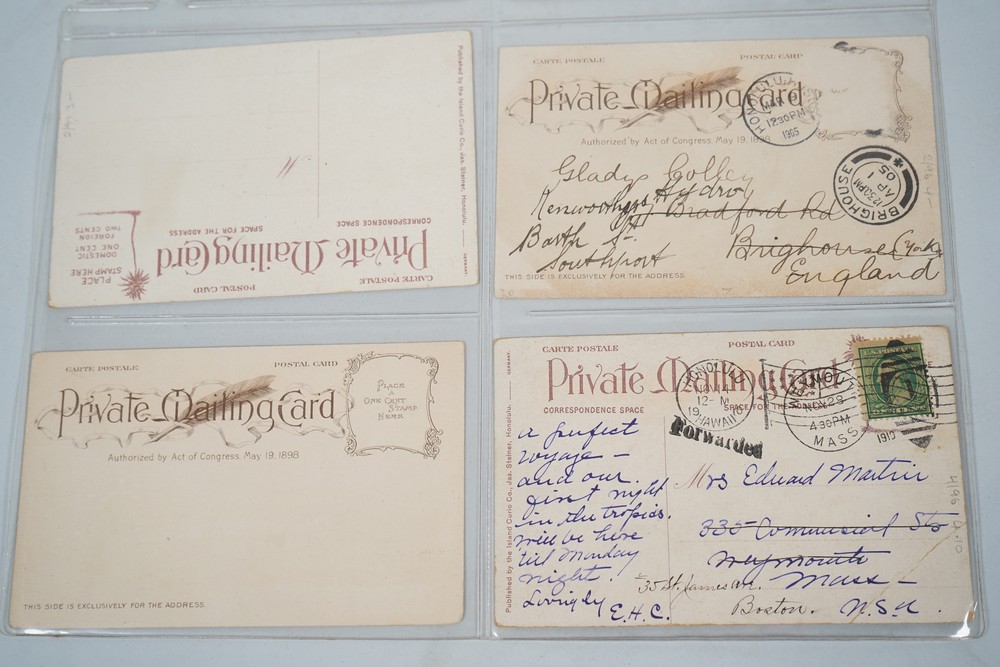 Published by the Island Curio Co., Jas. Steiner, Honolulu.
GERMANY.
CARTE POSTALE
POSTAL CARD
Private Mailing Card
CORRESPONDENCE SPACE
SPACE FOR THE ADDRESS
PLACE
STAMP HERE
DOMESTIC
ONE CENT
FOREIGN
TWO CENTS
CARTE POSTALE
POSTAL CARD
Private Mailing Card
Authorized by Act of Congress, May 19, 1898
HONOLULU
MAR
12:30 PM
1905
BRIGHOUSE
12:30PM
AP 1
05
Gladys Golley
Hydro
Bradford Rd
Brighouse (York
England
Barth St.
Southport
THIS SIDE IS EXCLUSIVELY FOR THE ADDRESS.
CARTE POSTALE
POSTAL CARD
Private Mailing Card
Authorized by Act of Congress, May 19, 1898
PLACE
A
ONE CENT
STAMP
HERE
THIS SIDE IS EXCLUSIVELY FOR THE ADDRESS.
GERMANY.
CARTE POSTALE
POSTAL CARD
Private Mailing Card
CORRESPONDENCE SPACE
SPACE FOR THE ADDRESS
HONOLULU
12- M
19
HAWAII
4:30 PM
MASS
1910
U.S. POSTAGE
Forwarded
a perfect
voyage –
and our
first night
in the tropics.
Will be here
'till Monday
night.
Lovingly
E.H.C.
Mrs Edward Martin
335 Commercial St
Weymouth
Mass –
35 St. James Av.
Boston.
Published by the Island Curio Co., Jas. Steiner, Honolulu.